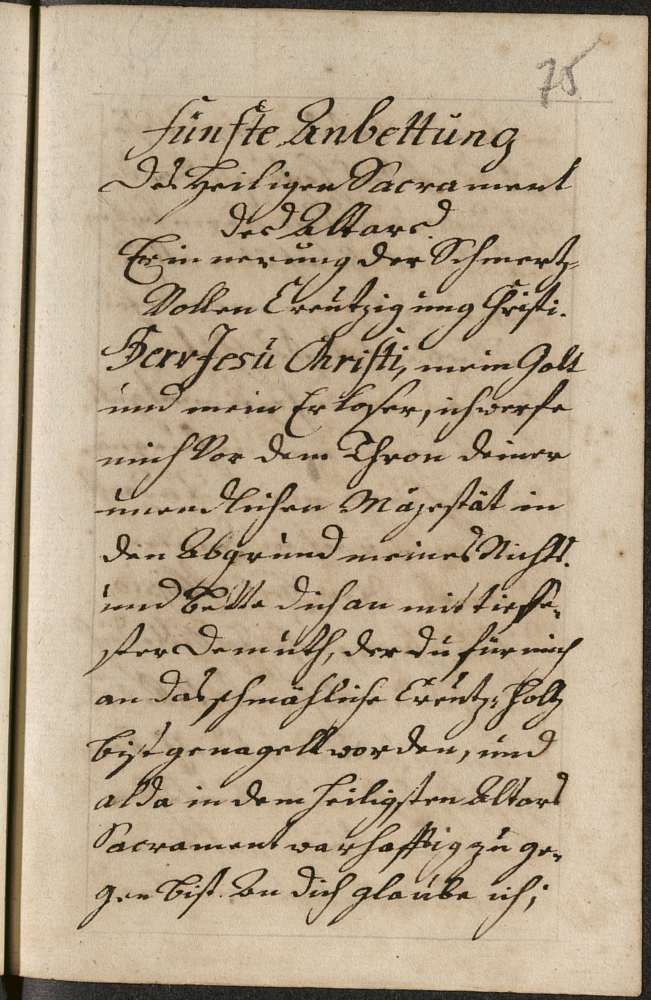 75
Fünfte Anbettung
Des Heiligen Sacrament
des Altars.
Erinnerung der Schmertz-
Vollen Creützigung Christi.
Herr Jesu Christi, mein Gott
und mein Erloser, ich werfe
mich Vor dem Thron deiner
unendlichen Majestät in
den Abgrund meines Nichts.
und bette dich an mit tieffe-
ster Demuth, der du für mich
an das schmähliche Creutz-Holtz
bist genagelt worden, und
alda in dem heiligsten Altars
Sacrament warhafftig zu ge-
gen bist. An dich glaube ich;